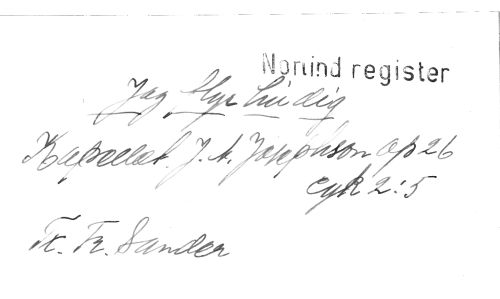 Norlind register
Jag flyr till dig
Kapellet. J. A. Josephson op 26
cyk 2:5
Tr. Fr. Sander